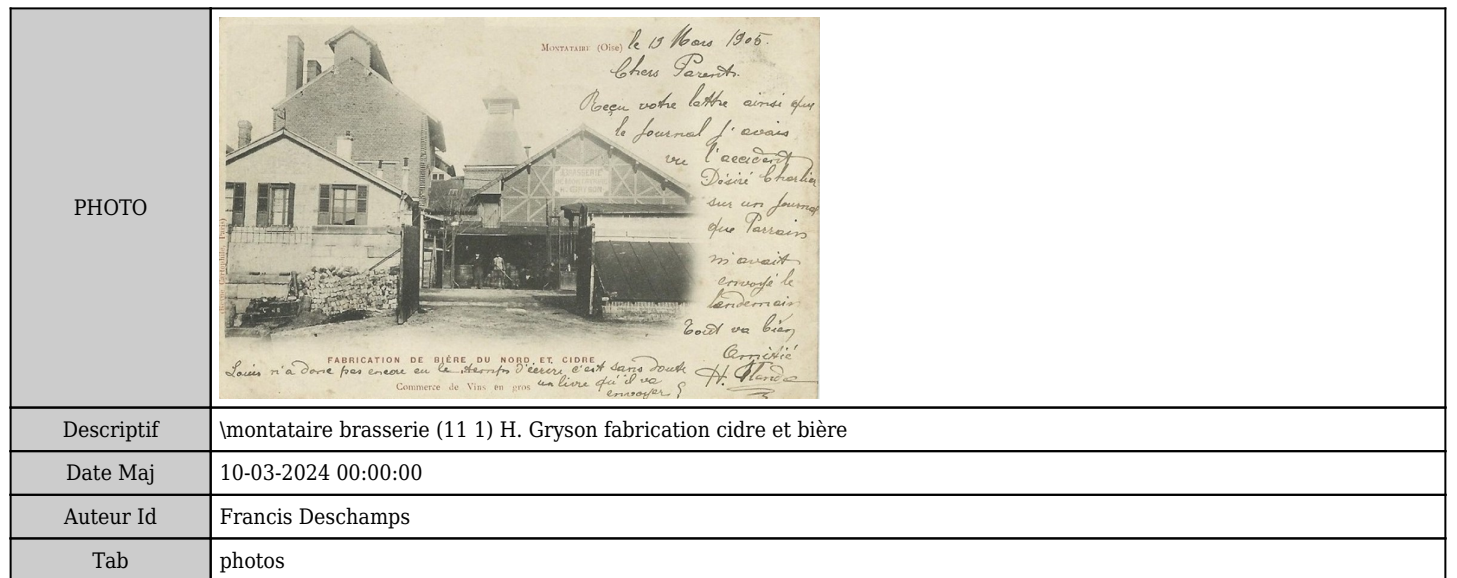 PHOTO
MONTATAIRE (Oise) le 19 Mars 1905.
Chers Parents.
Reçu votre lettre ainsi que
le Journal j'avais
vu l'accident
Désiré Charlier
sur un Journal
que Parrain
m'avait
envoyé le
lendemain
Tout va bien
Amitié
H.
BRASSERIE
FABRICATION DE BIÈRE DU NORD ET CIDRE
Louis n'a donc pas encore eu le temps d'écrire c'est sans doute
Commerce de Vins en gros un livre qu'il va
envoyer
Descriptif \montataire brasserie (11 1) H. Gryson fabrication cidre et bière
Date Maj 10-03-2024 00:00:00
Auteur Id Francis Deschamps
Tab photos